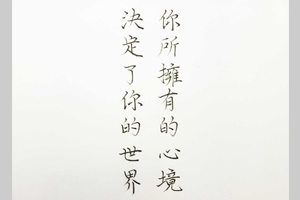 你所擁有的心境
決定了你的世界